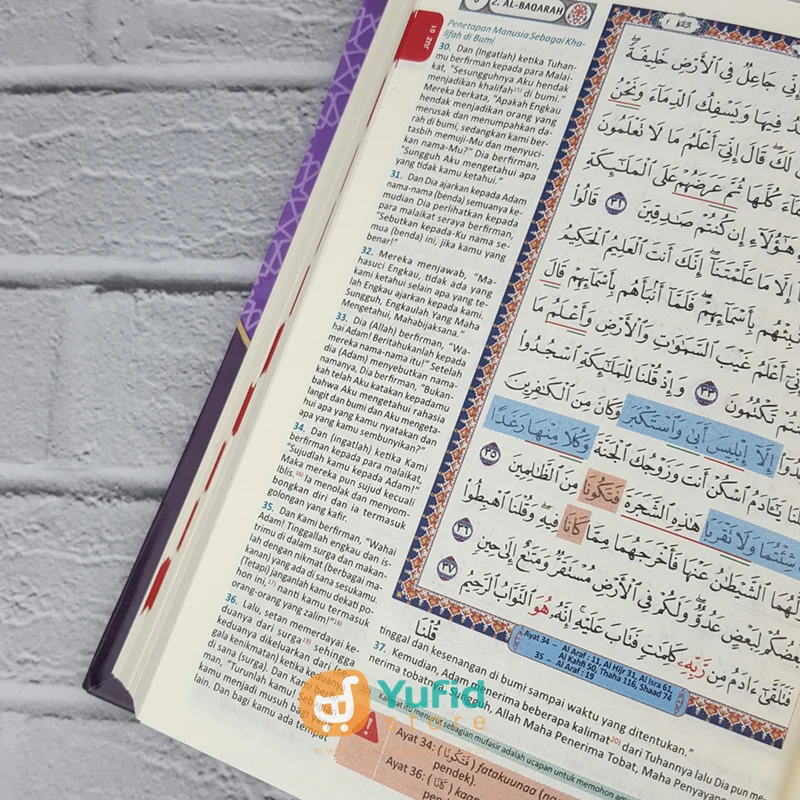 2. AL-BAQARAH
JUZ 01
Penetapan Manusia Sebagai Kha-
lifah di Bumi
30. Dan (Ingatlah) ketika Tuhan-
mu berfirman kepada para Malai-
kat, "Sesungguhnya Aku hendak
menjadikan khalifah di bumi."
Mereka berkata, "Apakah Engkau
hendak menjadikan orang yang
merusak dan menumpahkan da-
rah di bumi, sedangkan kami ber-
tasbih memuji-Mu dan menyuci-
kan nama-Mu?" Dia berfirman,
"Sungguh Aku mengetahui apa
yang tidak kamu ketahui."
31. Dan Dia ajarkan kepada Adam
nama-nama (benda) semuanya ke-
mudian Dia perlihatkan kepada
para malaikat seraya berfirman,
"Sebutkan kepada-Ku nama se-
mua (benda) ini, jika kamu yang
benar!"
32. Mereka menjawab, "Ma-
hasuci Engkau, tidak ada yang
kami ketahui selain apa yang te-
lah Engkau ajarkan kepada kami.
Sungguh, Engkaulah Yang Maha
Mengetahui, Mahabijaksana."
33. Dia (Allah) berfirman, "Wa-
hai Adam! Beritahukanlah kepada
mereka nama-nama itu!" Setelah
dia (Adam) menyebutkan nama-
namanya, Dia berfirman, "Bukan-
kah telah Aku katakan kepadamu
bahwa Aku mengetahui rahasia
langit dan bumi dan Aku mengeta-
hui apa yang kamu nyatakan dan
apa yang kamu sembunyikan?"
34. Dan (ingatlah) ketika Kami
berfirman kepada para malaikat,
"Sujudlah kamu kepada Adam!"
Maka mereka pun sujud kecuali
Iblis.16) Ia menolak dan menyom-
bongkan diri dan ia termasuk
golongan yang kafir.
35. Dan Kami berfirman, "Wahai
Adam! Tinggallah engkau dan is-
trimu di dalam surga dan makan-
lah dengan nikmat (berbagai ma-
kanan) yang ada di sana sesukamu.
(Tetapi) janganlah kamu dekati po-
hon ini,17) nanti kamu termasuk
orang-orang yang zalim!"18)
36. Lalu, setan memerdayai ke-
duanya dari surga19) sehingga
keduanya dikeluarkan dari (se-
gala kenikmatan) ketika keduanya
di sana (surga). Dan Kami berfir-
man, "Turunlah kamu! Sebagian
kamu menjadi musuh bagi yang
lain. Dan bagi kamu ada tempat
إِنِّي جَاعِلٌ فِي الْأَرْضِ خَلِيفَةً
فِيهَا وَيَسْفِكُ الدِّمَاءَ وَنَحْنُ
لَكَ قَالَ إِنِّي أَعْلَمُ مَا لَا تَعْلَمُونَ
كُلَّهَا ثُمَّ عَرَضَهُمْ عَلَى الْمَلَائِكَةِ
هَؤُلَاءِ إِنْ كُنْتُمْ صَادِقِينَ ٣١ قَالُوا
إِلَّا مَا عَلَّمْتَنَا إِنَّكَ أَنْتَ الْعَلِيمُ الْحَكِيمُ
بِأَسْمَائِهِمْ فَلَمَّا أَنْبَأَهُمْ بِأَسْمَائِهِمْ قَالَ
إِنِّي أَعْلَمُ غَيْبَ السَّمَاوَاتِ وَالْأَرْضِ وَأَعْلَمُ مَا
تَكْتُمُونَ ٣٣ وَإِذْ قُلْنَا لِلْمَلَائِكَةِ اسْجُدُوا
إِلَّا إِبْلِيسَ أَبَى وَاسْتَكْبَرَ وَكَانَ مِنَ الْكَافِرِينَ
يَا آدَمُ اسْكُنْ أَنْتَ وَزَوْجُكَ الْجَنَّةَ وَكُلَا مِنْهَا رَغَدًا
شِئْتُمَا وَلَا تَقْرَبَا هَذِهِ الشَّجَرَةَ فَتَكُونَا مِنَ الظَّالِمِينَ ٣٥
الشَّيْطَانُ عَنْهَا فَأَخْرَجَهُمَا مِمَّا كَانَا فِيهِ وَقُلْنَا اهْبِطُوا
لِبَعْضٍ عَدُوٌّ وَلَكُمْ فِي الْأَرْضِ مُسْتَقَرٌّ وَمَتَاعٌ إِلَى حِينٍ ٣٦
فَتَلَقَّى آدَمُ مِنْ رَبِّهِ كَلِمَاتٍ فَتَابَ عَلَيْهِ إِنَّهُ هُوَ التَّوَّابُ الرَّحِيمُ ٣٧
قُلْنَا
Ayat 34 – Al Araf : 11, Al Hijr 31, Al Isra 61,
Al Kahfi 50, Thaha 116, Shaad 74
35 – Al Araf : 19
tinggal dan kesenangan di bumi sampai waktu yang ditentukan."
37. Kemudian, Adam menerima beberapa kalimat20) dari Tuhannya lalu Dia pun me-
nerima tobatnya. Sungguh, Allah Maha Penerima Tobat, Maha Penyayang
Kalimat itu menurut sebagian mufasir adalah ucapan untuk memohon am
Ayat 34: (فَتَكُونَا) fatakuunaa (
pendek).
Ayat 36: (كَانَا) kaan
Yufid
store